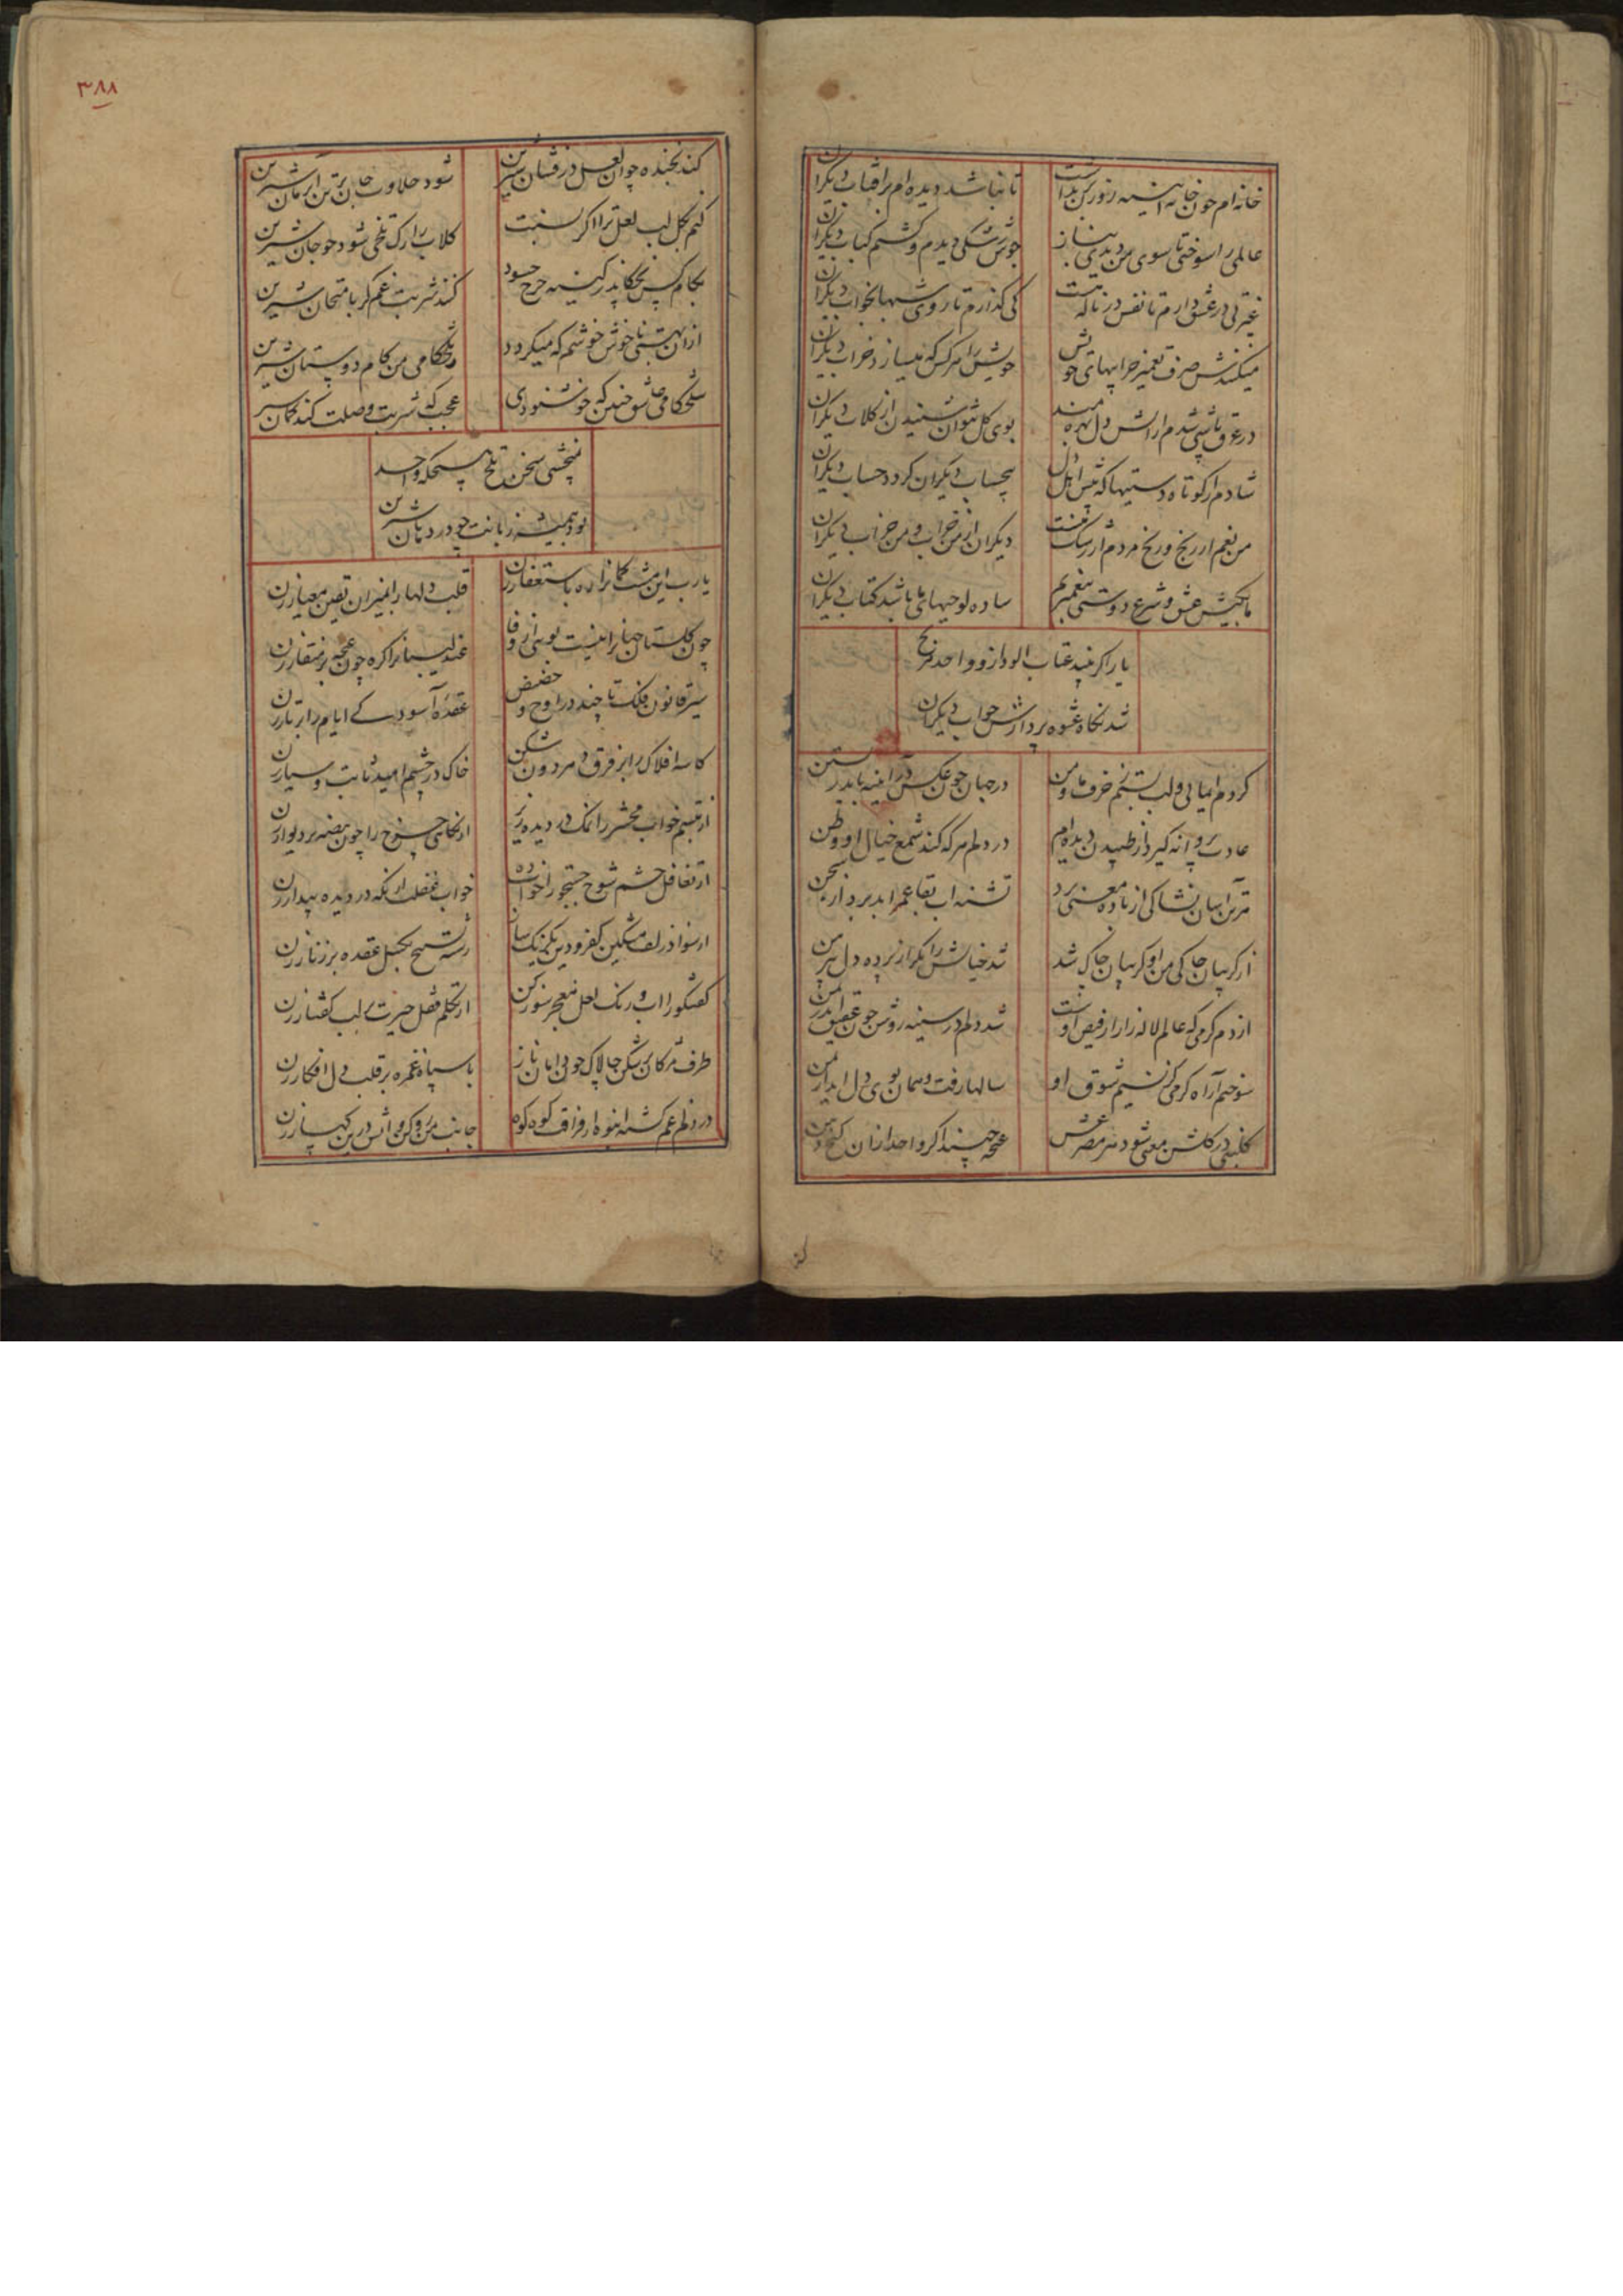 خانه‌ام چون خانه آئینه زنور کس بداست
تا نباشد دیده‌ام بر افتاب دیگران
عالمی را سوختی تا سوی من دیدی بناز
جوش رشکی دیدم و کشتم کباب دیگران
غیرتی در عشق دارم تا نفس در ناله هست
کی گذارم تا روی شبها بخواب دیگران
میکندش صرف تعمیر خرابیهای خویش
خویش را هر کس که میسازد خراب دیگران
در عرق تا شدم از اتش دل بهره‌مند
بوی گل نتوان شنیدن از گلاب دیگران
شادم از کوتاه دستیها که پیش اهل دل
بیحساب دیگران کردد حساب دیگران
من بغم از رنج و رنج مردم از رشک منست
دیگران از من خراب و من خراب دیگران
ما بکیش عشق و شرع دوستی پیغمبریم
ساده لوحیهای ما باشد کتاب دیگران
یار اگر بیند عتاب الود ازو واحد مرنج
شد نگاه عشوه پردازش جواب دیگران
کرده‌ام و لب بستنم حرف ما و من
در جهان چون عکس در آئینه باید زیستن
عادت پروانه گیرد از طپیدن دیده‌ام
در دلم هر که کند شمع خیال او وطن
تشنه اب بقا عمر ابد بردارد
از گریبان چاکی من او گریبان چاک شد
شد خیالش را مگر از پرده دل پیرهن
از دم گرمی که عالم لاله‌زار از فیض اوست
شد دلم در سینه روشن چون عقیق اندر یمن
سوختم از آه گرمی کز نسیم شوق او
سالها رفت و همان بوی دل اید از من
گلبنی در گلشن معنی شود هر مصرعش
غنچه چیند اگر واحد ازان کنج دهن
۳۸۸
کند بخنده چو ان لعل درفشان شیرین
شود حلاوت جان بر تن ارمان شیرین
کنم بگل لب لعل ترا اگر نسبت
گلاب را رگ تلخی شود چو جان شیرین
بکام کس نچکاند ز کینه چرخ حسود
کند شربت غم گر بامتحان شیرین
ازان بهستی ناخوش خوشم که میگردد
ز تلخکامی من کام دوستان شیرین
بتلخکامی عاشق چنین که خوشنودی
عجب که شربت وصلت کند گمان شیرین
نچشی سخن تلخ بسکه واحد
بود همیشه زبانت چو در دهان شیرین
یارب این مشت گمانرا ره باستغفار زن
قلب دلها را بمیزان یقین معیار زن
چون گلستان جهانرا نیست بوئی از وفا
عندلیبانرا گره چون غنچه بر منقار زن
سیر قانون فلک تا چند در اوج و حضیض
عقده آسودگی ایام را بر تار زن
کاسه افلاک را بر فرق هر دون شکن
خاک در چشم امید ثابت و سیار زن
از تبسم خواب محشر را نمک در دیده ریز
از نگاهی چرخ را چون بیضه بر دیوار زن
از تغافل چشم شوخ جستجو را خواب ده
خواب غفلت از نگه در دیده بیدار زن
از سواد زلف مشکین کفر و دین یکرنگ ساز
رشته تسبیح بگسل عقده بر زنار زن
گفتگو را اب و رنگ لعل معجز سوز کن
از تکلم قفل حیرت بر لب گفتار زن
طرف مژگان برشکن چالاک جولان ناز
با سپاه غمزه بر قلب دل افکار زن
در دلم غم گشته انبوه از فراق کوه کوه
جانب من رو کن و اتش درین کهسار زن